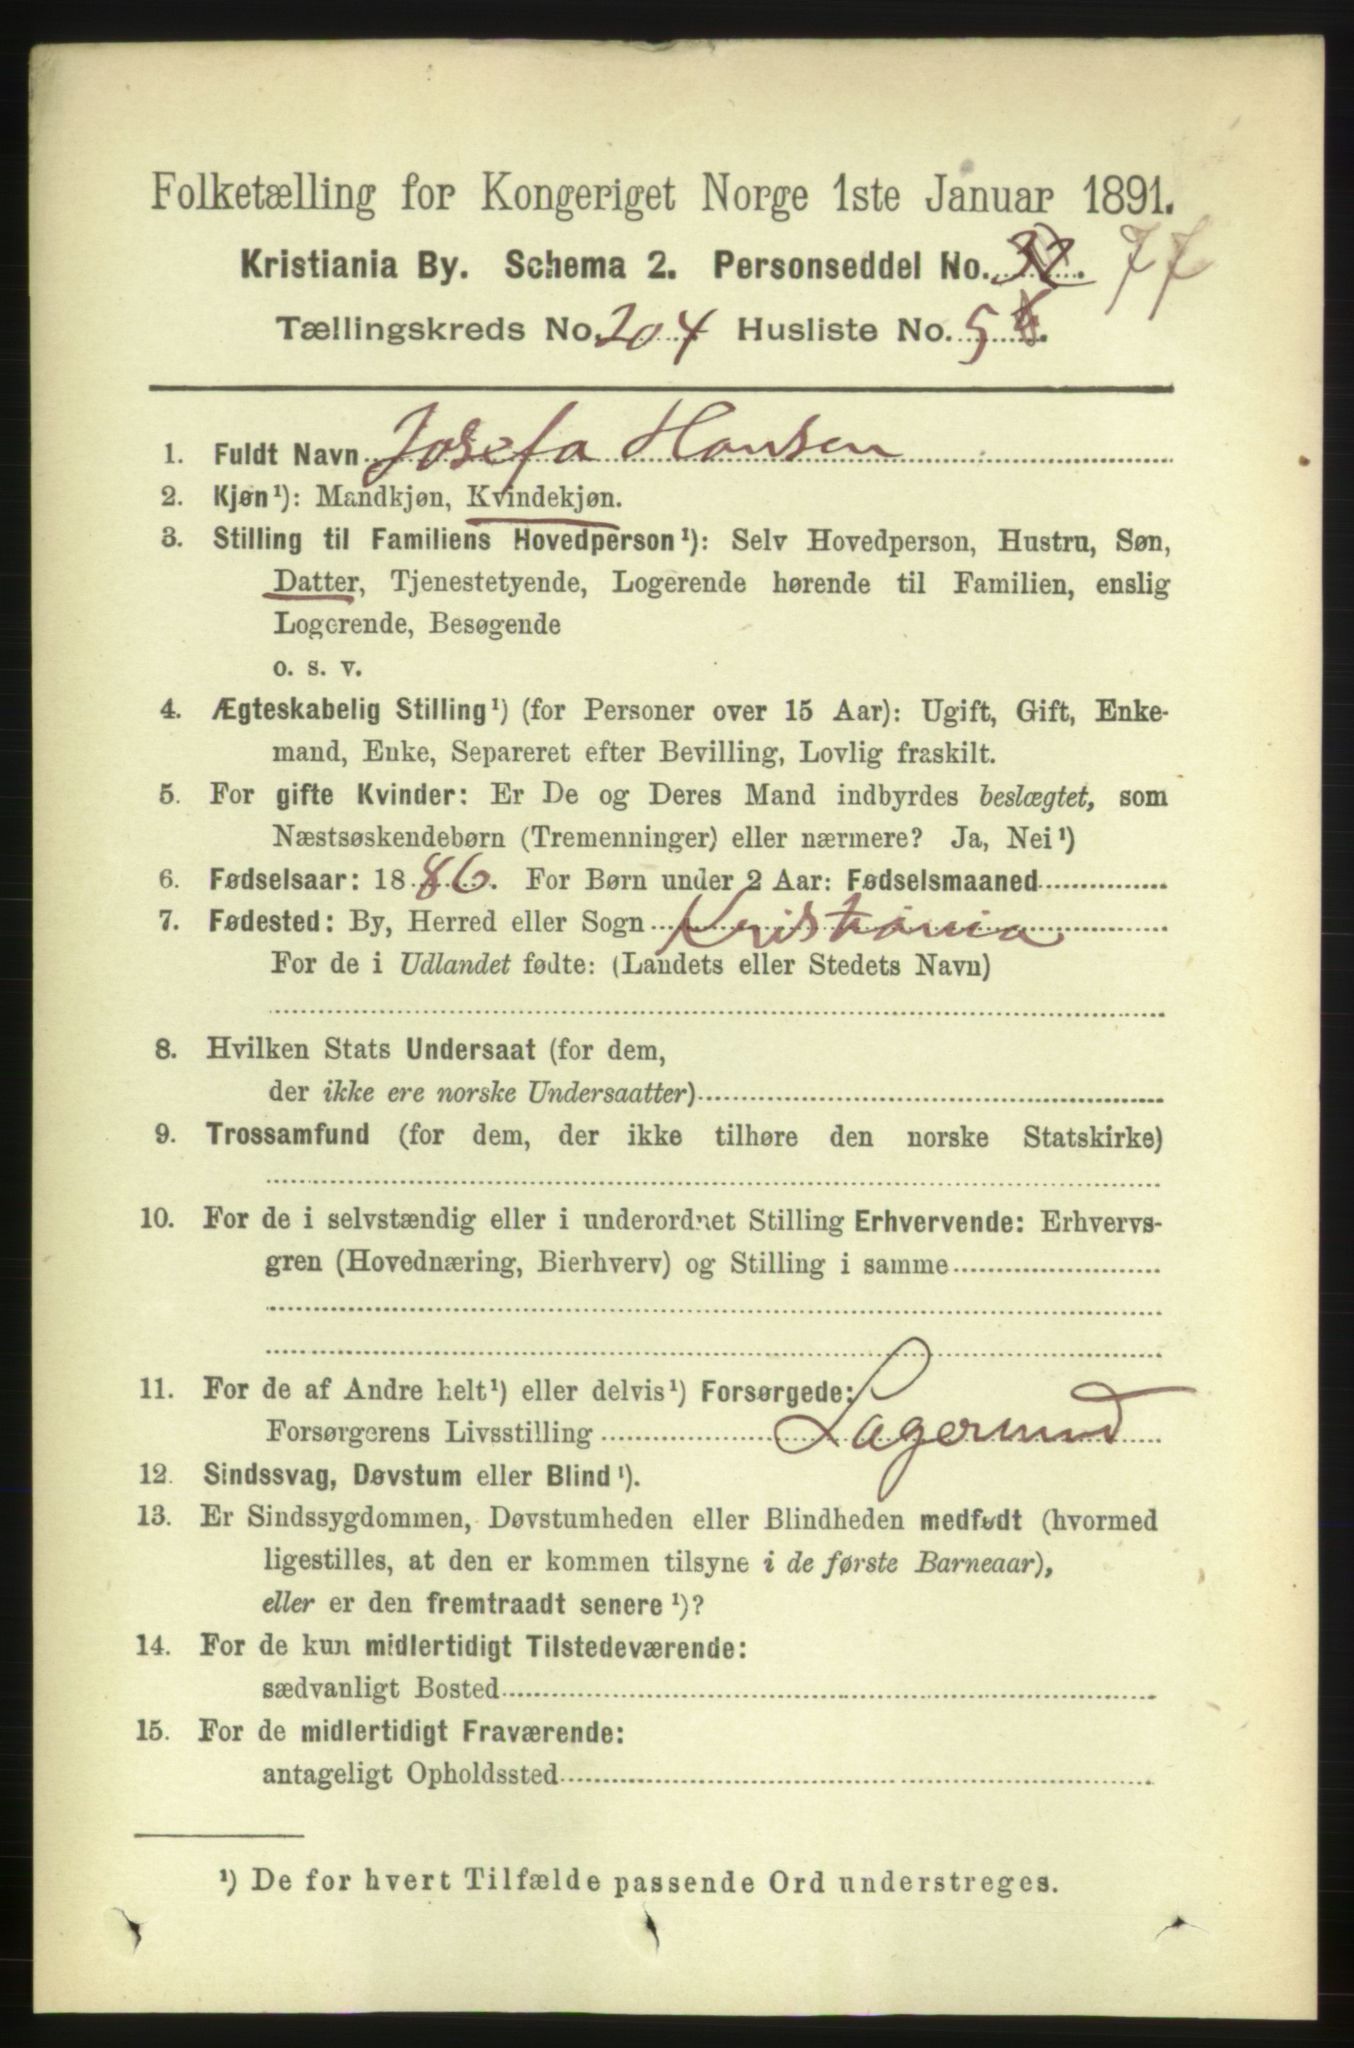 Folketælling for Kongeriget Norge 1ste Januar 1891.
Kristiania By. Schema 2. Personseddel No. 77
Tællingskreds No. 204 Husliste No. 5
1. Fuldt Navn Josefa Hansen
2. Kjøn¹): Mandkjøn, Kvindekjøn.
3. Stilling til Familiens Hovedperson¹): Selv Hovedperson, Hustru, Søn,
Datter, Tjenestetyende, Logerende hørende til Familien, enslig
Logerende, Besøgende
o. s. v.
4. Ægteskabelig Stilling¹) (for Personer over 15 Aar): Ugift, Gift, Enke-
mand, Enke, Separeret efter Bevilling, Lovlig fraskilt.
5. For gifte Kvinder: Er De og Deres Mand indbyrdes beslægtet, som
Næstsøskendebørn (Tremenninger) eller nærmere? Ja, Nei¹)
6. Fødselsaar: 1886. For Børn under 2 Aar: Fødselsmaaned
7. Fødested: By, Herred eller Sogn Kristiania
For de i Udlandet fødte: (Landets eller Stedets Navn)
8. Hvilken Stats Undersaat (for dem,
der ikke ere norske Undersaatter)
9. Trossamfund (for dem, der ikke tilhøre den norske Statskirke)
10. For de i selvstændig eller i underordnet Stilling Erhvervende: Erhvervs-
gren (Hovednæring, Bierhverv) og Stilling i samme
11. For de af Andre helt¹) eller delvis¹) Forsørgede:
Forsørgerens Livsstilling Lagermand
12. Sindssvag, Døvstum eller Blind¹).
13. Er Sindssygdommen, Døvstumheden eller Blindheden medfødt (hvormed
ligestilles, at den er kommen tilsyne i de første Barneaar),
eller er den fremtraadt senere¹)?
14. For de kun midlertidigt Tilstedeværende:
sædvanligt Bosted
15. For de midlertidigt Fraværende:
antageligt Opholdssted
¹) De for hvert Tilfælde passende Ord understreges.